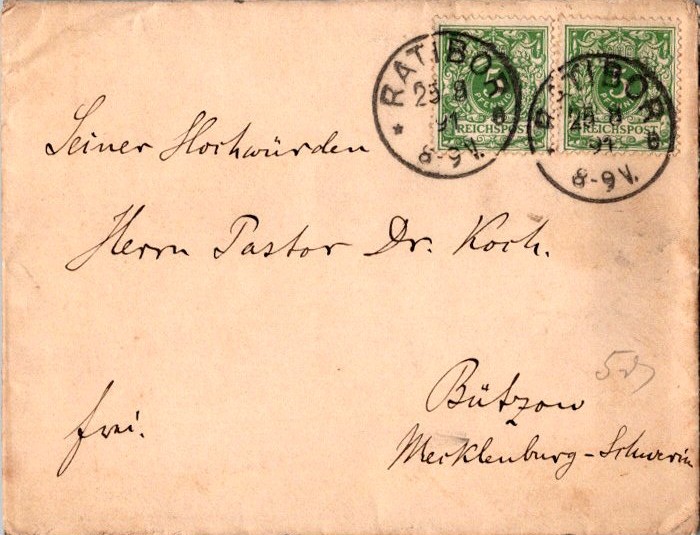 5 5
PFENNIG PFENNIG
REICHSPOST REICHSPOST
RATIBOR
25 8
91 6
* 8-9 V.
RATIBOR
25 8
91 6
* 8-9 V.
Seiner Hochwürden
Herrn Pastor Dr. Koch.
frei.
Bützow
Mecklenburg-Schwerin